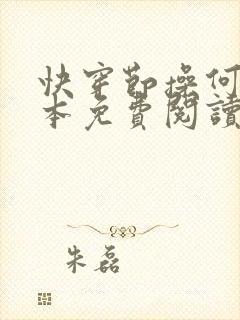 快穿節操何
本免費閱讀
朱磊